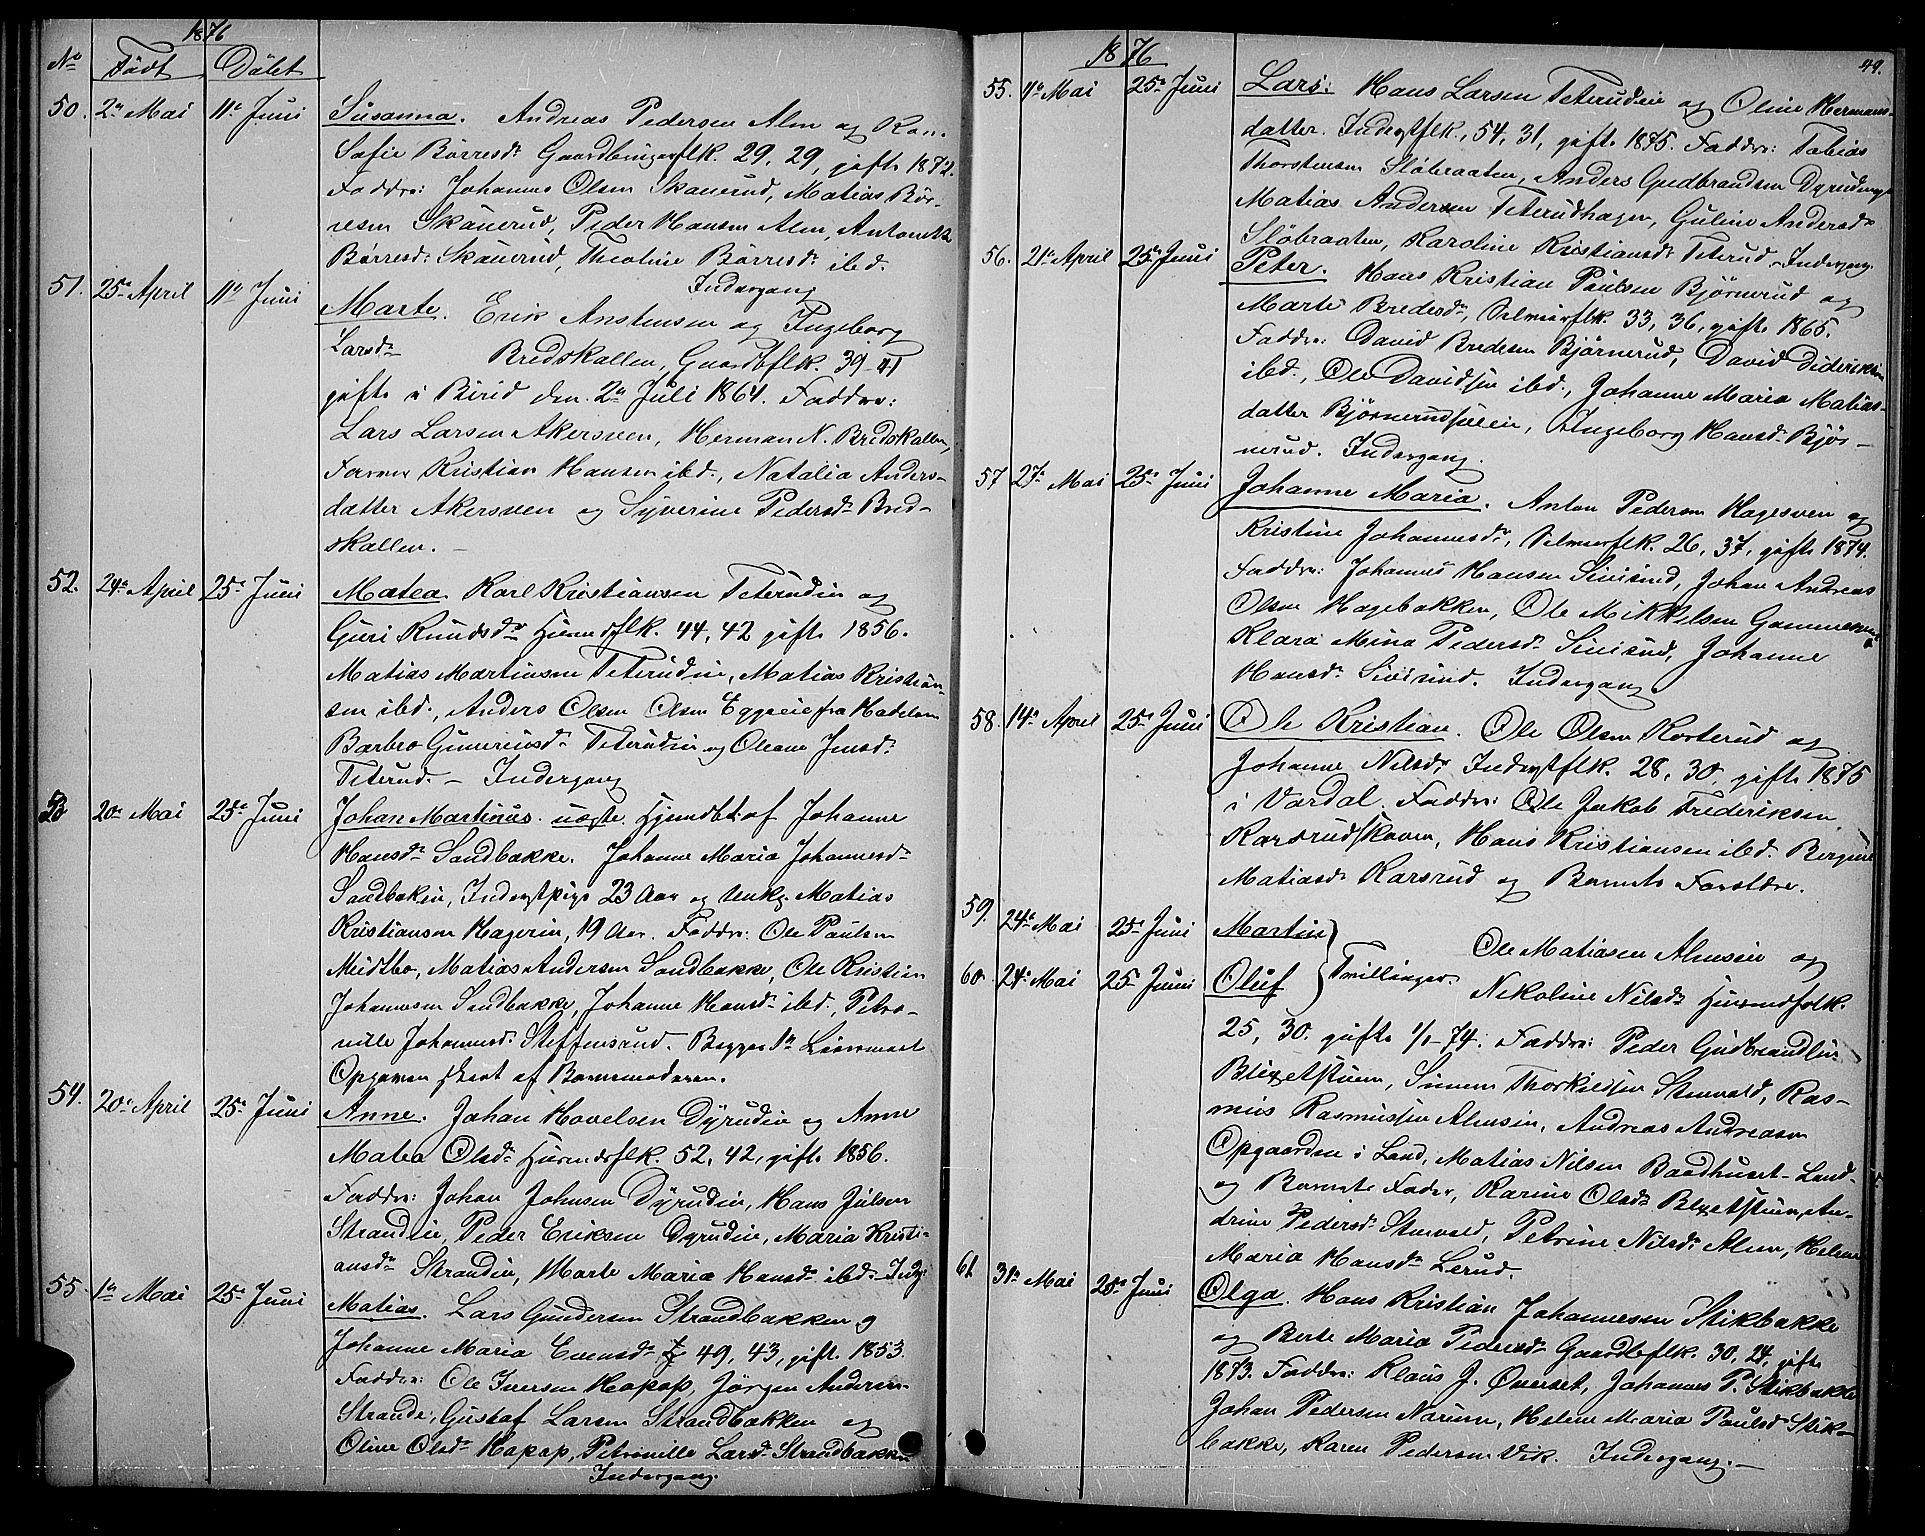 1876
No Födt Döbt
50. 2de Mai 11te Juni Susanna. Andreas Pedersen Alm og Karen
Sofie Börresdr Gaardbrugerflk. 29, 29, gifte 1872.
Faddre: Johannes Olsen Skauerud, Matias Bör-
resen Skauerud, Peder Hansen Alm, Antonette
Börresdr Skauerud, Theoline Börresdr ibd.
Indergang
51. 25de April 11te Juni Marte. Erik Anstensen og Ingeborg
Larsdr Bredskallen, Gaardbflk. 39-41
gifte i Birid den 2den Juli 1864. Faddre:
Lars Larsen Akersveen, Herman N. Bredskallen,
Farmer Kristian Hansen ibd., Natalia Anders-
datter Akersveen og Syverine Pedersdr Bred-
skallen. -
52. 24de April 25de Juni Matea. Karl Kristiansen Teterudeie og
Guri Knudsdr Huusmdsflk. 44, 42 gifte 1856.
Matias Martinsen Teterudeie, Matias Kristian-
sen ibd., Anders Olsen Olsen Eggseie fra Hadeland
Barbro Gunerusdr Teterudeie og Oleane Jensdr
Teterud. - Indergang
53 20de Mai 25de Juni Johan Martinus. uægte Hjemdbt: af Johanne
Hansdr Sandbakke. Johanne Maria Johannesdr
Sandbakken, Inderstpige 23 Aar og Unkg. Matias
Kristiansen Hageeie, 19 Aar. Faddre: Ole Paulsen
Midtbø, Matias Andersen Sandbakke, Ole Kristian
Johannesen Sandbakke, Johanne Hansdr ibd., Petro-
nille Johannesdr Steffensrud. Begges 1ste Leiermaal
Opgaven skeet af Barnemoderen.
54. 20de April 25de Juni Anne. Johan Hovelsen Dyrudeie og Anne
Matea Olsdr Huusmdsflk. 52, 42, gifte 1856.
Faddre: Johan Johnsen Dyrudeie, Hans Julsen
Strandeie, Peder Eriksen Dyrudeie, Maria Kristi-
ansdr Strandeie, Marte Maria Hansdr ibd. - Indg.
55. 1ste Mai 25de Juni Matias. Lars Gundersen Strandbakken og
Johanne Maria Evensdr 49, 43, gift. 1853.
Faddre: Ole Iversen Hapap, Jörgen Andersen
Strande, Gustaf Larsen Strandbakken og
Oline Olsdr Hapap, Petronille Larsdr Strandbakken
Indergang.
1876
49.
55. 4de Mai 25de Juni Lars: Hans Larsen Teterudeie og Oline Hermans-
datter. Inderstflk., 54, 31, gifte 1875. Faddre: Tobias
Thorstensen Slöbraaten, Anders Gudbrandsen Dyrudeng
Matias Andersen Teterudhagen, Guline Andersdr
Slöbraaten, Karoline Kristiansdr Teterud - Indergang.
56. 21de April 25de Juni Peter. Hans Kristian Paulsen Björnerud og
Marte Bredesdr, Selveierflk. 33, 36, gifte 1865.
Faddre: David Bredesen Björnerud, David Didriksen
ibd., Ole Davidsen ibd., Johanne Maria Matias-
datter Björnerudsveen, Ingeborg Hansdr Björ-
nerud. Indergang.
57 27de Mai 25de Juni Johanne Maria. Anton Pedersen Hagesveen og
Kristine Johannesdr, Selveierflk. 26, 37, gifte 1874.
Faddre: Johannes Hansen Sivesind, Johan Andreas
Olsen Hagebakken, Ole Mikkelsen
Klara Mina Pedersdr Sivesind, Johanne
Hansdr Sivesind. Indergang
58. 14de April 25de Juni Ole Kristian. Ole Olsen Korterud og
Johanne Nilsdr, Inderstflk. 28, 30 gifte 1875
i Vardal. Faddre: Ole Jakob Frederiksen
Karsrudskoven, Hans Kristiansen ibd. Bergine
Matiasdr Karsrud og Barnets Forældre.
59. 24de Mai 25de Juni Martin
Ole Matiasen Almseie og
60. 24de Mai 25 Juni Oluf Tvillinger. Nikoline Nilsdr Huusmdfolk.
25, 30. gifte 1/1-74. Faddre: Peder Gudbrandsen
Blixetstuen, Simen Thorkildsen Stenvold, Ras-
mus Rasmussen Almseie, Andreas Andreasen
Opgaarden i Land, Matias Nilsen Baadhuset-Land-
og Barnets Fader, Karine Olsdr Blixetstuen, An-
drine Pedersdr Stenvold, Petrine Nilsdr Alm, Helene
Maria Hansdr Lerud.
61 31te Mai 25de Juni Olga. Hans Kristian Johannesen Stikbakke
og Berte Maria Pedersdr Gaardbflk. 30, 24, gifte
1873. Faddre: Klaus J. Överset, Johannes P. Stikbakke
Johan Pedersen Narum, Helene Maria Paulsdr Stik-
bakke, Karen Pedersen Vik. Indergang. -